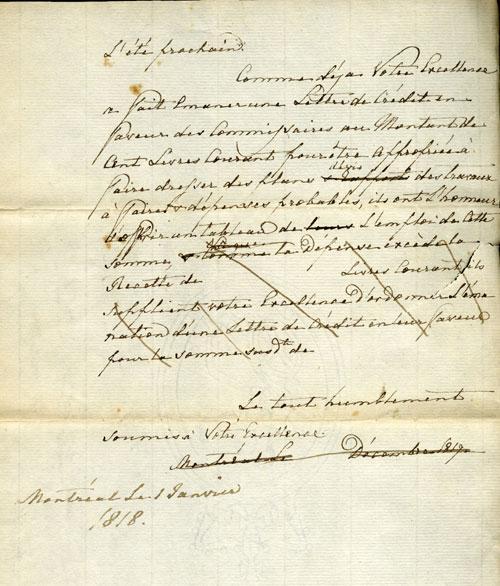 L'été prochain.
Comme déja Votre Excellence
a fait Emaner une Lettre de Crédit en
faveur des Commissaires au Montant de
Cent Livres Courant pour être Approprïée à
devis
faire dresser des plans & des travaux
à faire & dépenses probables, ils ont L'honneur
d'offrir un tableau de leurs L'emploi de Cette
Somme, & comme la Dépense excède la
Livres Courant, ils
Recette de
Supplient votre Excellence d'ordonner L'éma
nation d'une Lettre de Crédit en leur faveur
pour la somme susdte de
Le tout humblement
soumis à Votre Excellence
Montréal Le Décembre 1817
Montréal Le 1 Janvier
1818.